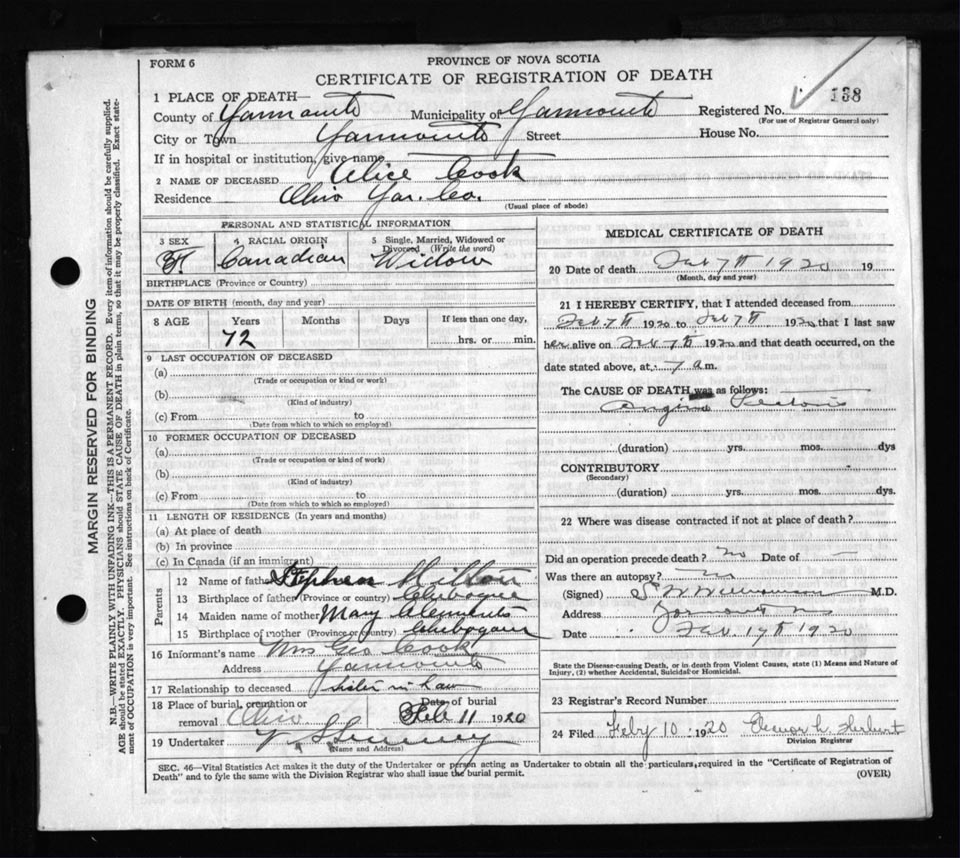 FORM 6
PROVINCE OF NOVA SCOTIA
CERTIFICATE OF REGISTRATION OF DEATH
1 PLACE OF DEATH—
County of Yarmouth Municipality of Yarmouth Registered No. 138
(For use of Registrar General only)
City or Town Yarmouth Street House No.
If in hospital or institution, give name
2 NAME OF DECEASED Alice Cook
Residence Ohio Yar. Co.
(Usual place of abode)
PERSONAL AND STATISTICAL INFORMATION
3 SEX 4 RACIAL ORIGIN 5 Single, Married, Widowed or Divorced (Write the word)
Canadian Widow
BIRTHPLACE (Province or Country)
DATE OF BIRTH (month, day and year)
8 AGE Years Months Days If less than one day,
72 hrs. or min.
9 LAST OCCUPATION OF DECEASED
(a)
(Trade or occupation or kind or work)
(b)
(Kind of industry)
(c) From to
(Date from which to which so employed)
10 FORMER OCCUPATION OF DECEASED
(a)
(Trade or occupation or kind or work)
(b)
(Kind of industry)
(c) From to
(Date from which to which so employed)
11 LENGTH OF RESIDENCE (In years and months)
(a) At place of death
(b) In province
(c) In Canada (if an immigrant)
Parents
12 Name of father Stephen Hilton
13 Birthplace of father (Province or country) Chebogue
14 Maiden name of mother Mary Clements
15 Birthplace of mother (Province or country) Chebogue
16 Informant's name Mrs Geo Cook
Address Yarmouth
17 Relationship to deceased Sister in Law
18 Place of burial, cremation or removal Ohio Date of burial Feb 11 1920
19 Undertaker
(Name and Address)
MEDICAL CERTIFICATE OF DEATH
20 Date of death Feb 7th 1920 19
(Month, day and year)
21 I HEREBY CERTIFY, that I attended deceased from
Feb 7th 1920 to Feb 7th 1920 that I last saw
her alive on Feb 7th 1920 and that death occurred, on the
date stated above, at 7 a.m.
The CAUSE OF DEATH was as follows:
Angina Pectoris
(duration) yrs. mos. dys
CONTRIBUTORY
(Secondary)
(duration) yrs. mos. dys.
22 Where was disease contracted if not at place of death?
Did an operation precede death? No Date of —
Was there an autopsy? No
(Signed) M.D.
Address Yarmouth NS
Date Feb. 17th 1920
State the Disease-causing Death, or in death from Violent Causes, state (1) Means and Nature of
Injury, (2) whether Accidental, Suicidal or Homicidal.
23 Registrar's Record Number
24 Filed Feby 10 1920
Division Registrar
SEC. 46—Vital Statistics Act makes it the duty of the Undertaker or person acting as Undertaker to obtain all the particulars required in the "Certificate of Registration of
Death" and to fyle the same with the Division Registrar who shall issue the burial permit. (OVER)
MARGIN RESERVED FOR BINDING
N.B.—WRITE PLAINLY WITH UNFADING INK—THIS IS A PERMANENT RECORD. Every item of information should be carefully supplied.
AGE should be stated EXACTLY. PHYSICIANS should STATE CAUSE OF DEATH in plain terms, so that it may be properly classified. Exact state-
ment of OCCUPATION is very important. See instructions on back of Certificate.